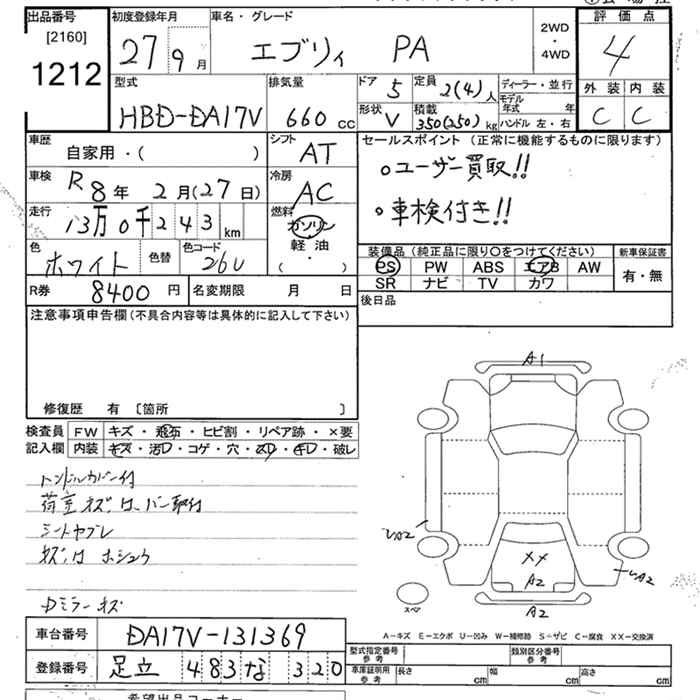 出品番号
[2160]
1212
初度登録年月
27 9月
車名・グレード
エブリィ PA
2WD
・
4WD
評価点
4
型式
HBD-DA17V
排気量
660 cc
ドア 5
定員 2(4)人
形状 V
積載 350(250) kg
ディーラー・並行
モデル年式 年
ハンドル 左・右
外装 内装
C C
車歴
自家用・( )
シフト
AT
車検
R8年 2月(27日)
冷房
AC
走行
13万0千243 km
燃料
ガソリン
軽油
( ・ )
色
ホワイト
色替
色コード
26U
R券 8400円
名変期限 月 日
セールスポイント (正常に機能するものに限ります)
○ユーザー買取!!
○車検付き!!
装備品(純正品に限り○をつけてください)
PS PW ABS エアB AW
SR ナビ TV カワ
新車保証書
有・無
後日品
注意事項申告欄(不具合内容等は具体的に記入して下さい)
修復歴 有 〔箇所 〕
検査員
記入欄
FW キズ・飛石・ヒビ割・リペア跡・×要
内装 キズ・汚レ・コゲ・穴・スレ・キレ・破レ
ハンドルカバー付
シートヤブレ
Dミラーキズ
A1
A2
XX
A2
A2
A2
スペア
A-キズ E-エクボ U-凹み W-補修跡 S-サビ C-腐食 XX-交換済
車台番号 DA17V-131369
登録番号 足立 483 な 320
型式指定番号
参考
類別区分番号
参考
車庫証明用
参考
長さ cm 幅 cm 高さ cm
希望出品コーナー